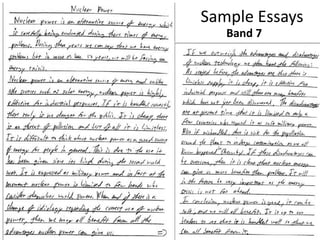 Sample Essays
Band 7
Nuclear Power
Nuclear power is an alternative source of energy which
is carefully being evaluated during these times of energy
problems. During these years we can say that we have energy
problems but in about 50 years, we will be facing an
energy crisis.
Nuclear power is an alternative source of energy and unlike
other sources such as solar energy, nuclear power is highly
effective for industrial purposes. If it is handled correctly
there really is no danger for the public. It is cheap, there
is no threat of pollution and best of all it is limitless.
It is difficult to think about nuclear power as a good source
of energy for people in general. This is due to the use it
has been given since its birth during the second world
war. It is expressed as military power and in fact at the
moment nuclear power is limited to few hands who
consider themselves world powers. When and if there is a
change of ideology regarding the correct use of nuclear
power, then we may all benefit from all the
advantages nuclear power can give us.
If we outweigh the advantages and disadvantages
of nuclear technology we then have the following:
As stated before, the advantages are that there is
limitless supply, it is cheap, it is effective for
industrial purposes and still there are many benefits
which have not yet been discovered. The disadvantages
are at present time that it is limited to only a
few countries who regard it as military power.
Also if mishandled, there is risk for the population
around the plant to undergo contamination as we all
know happened in Chernobyl. If these disadvantages can
be overcome, then it is clear that nuclear energy
can give us more benefits than problems. It will
in the future be very important as the energy
crisis is not far ahead.
In conclusion, nuclear power is good, it can be
safe, and we will all benefit. It is up to our
leaders to see that it is handled well so that we
can all benefit from it.